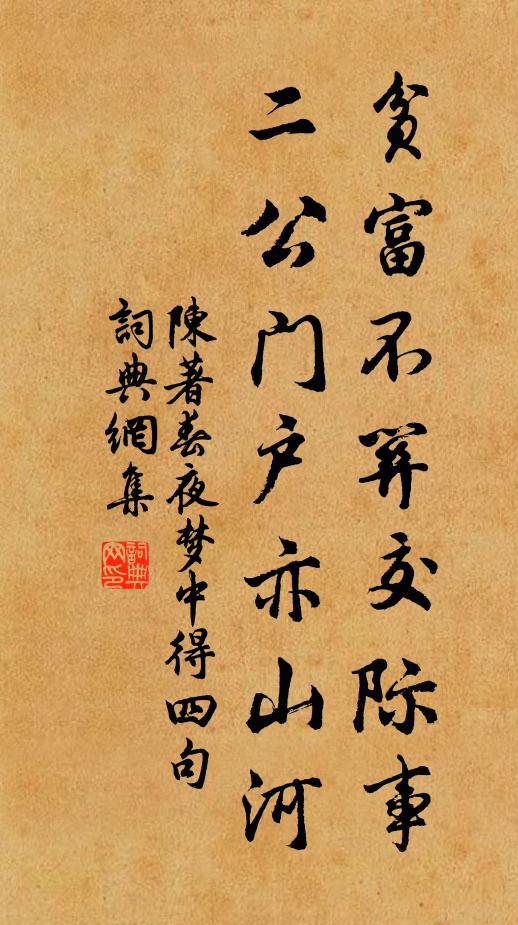 贫富不关交际事
二公门户亦山河
陳著春夜梦中得四句
詞典網集
詞典网印